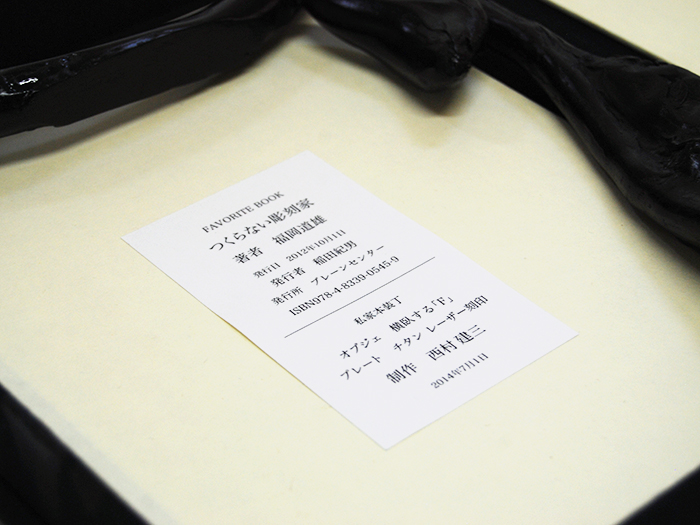 FAVORITE BOOK
つくらない彫刻家
著者　福岡道雄
発行日　2012年10月1日
発行者　稲田紀男
発行所　ブレーンセンター
ISBN978-4-8339-0545-9
私家本装丁
オブジェ　横臥する「F」
プレート　チタン レーザー刻印
制作　西村 建三
2014年7月1日